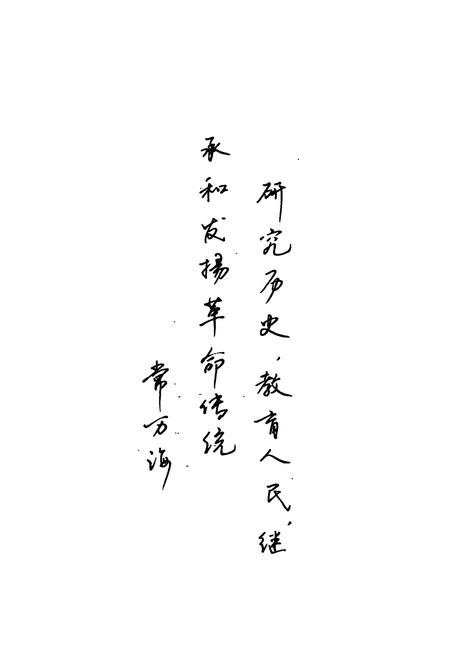 研究历史，教育人民，继
承和发揚革命传统
常万海